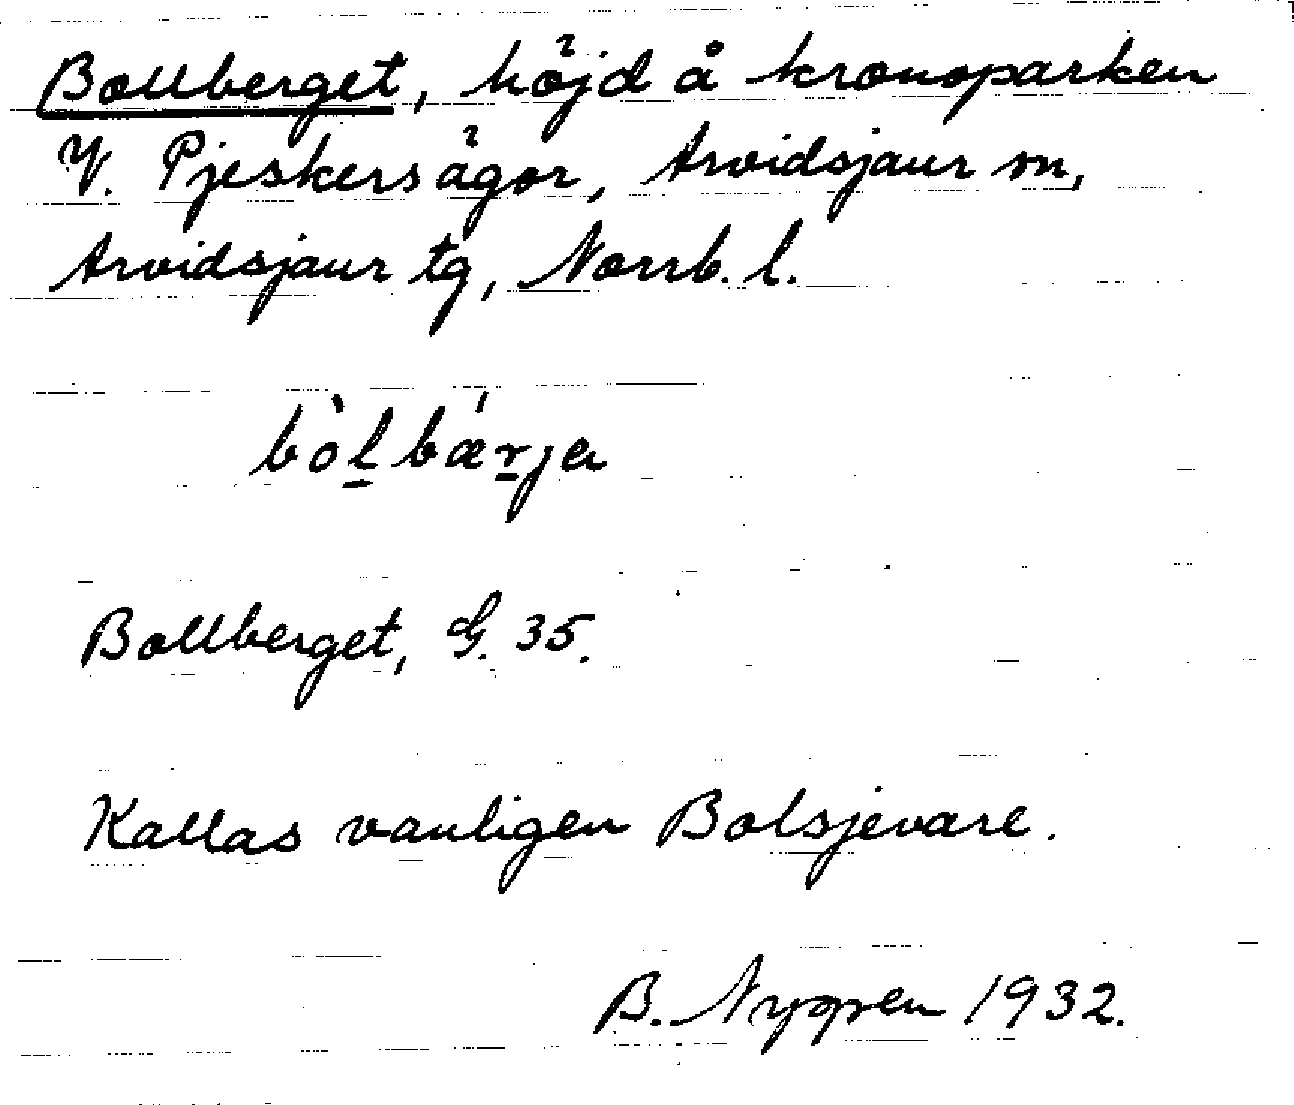 Bollberget, höjd å kronoparken
V. Pjeskersägor, Arvidsjaur sn,
Arvidsjaur tg, Norrb. l.
bòl̠bä́r̠ja
Bollberget, G. 35.
Kallas vanligen Bolsjevare.
B. Nygren 1932.